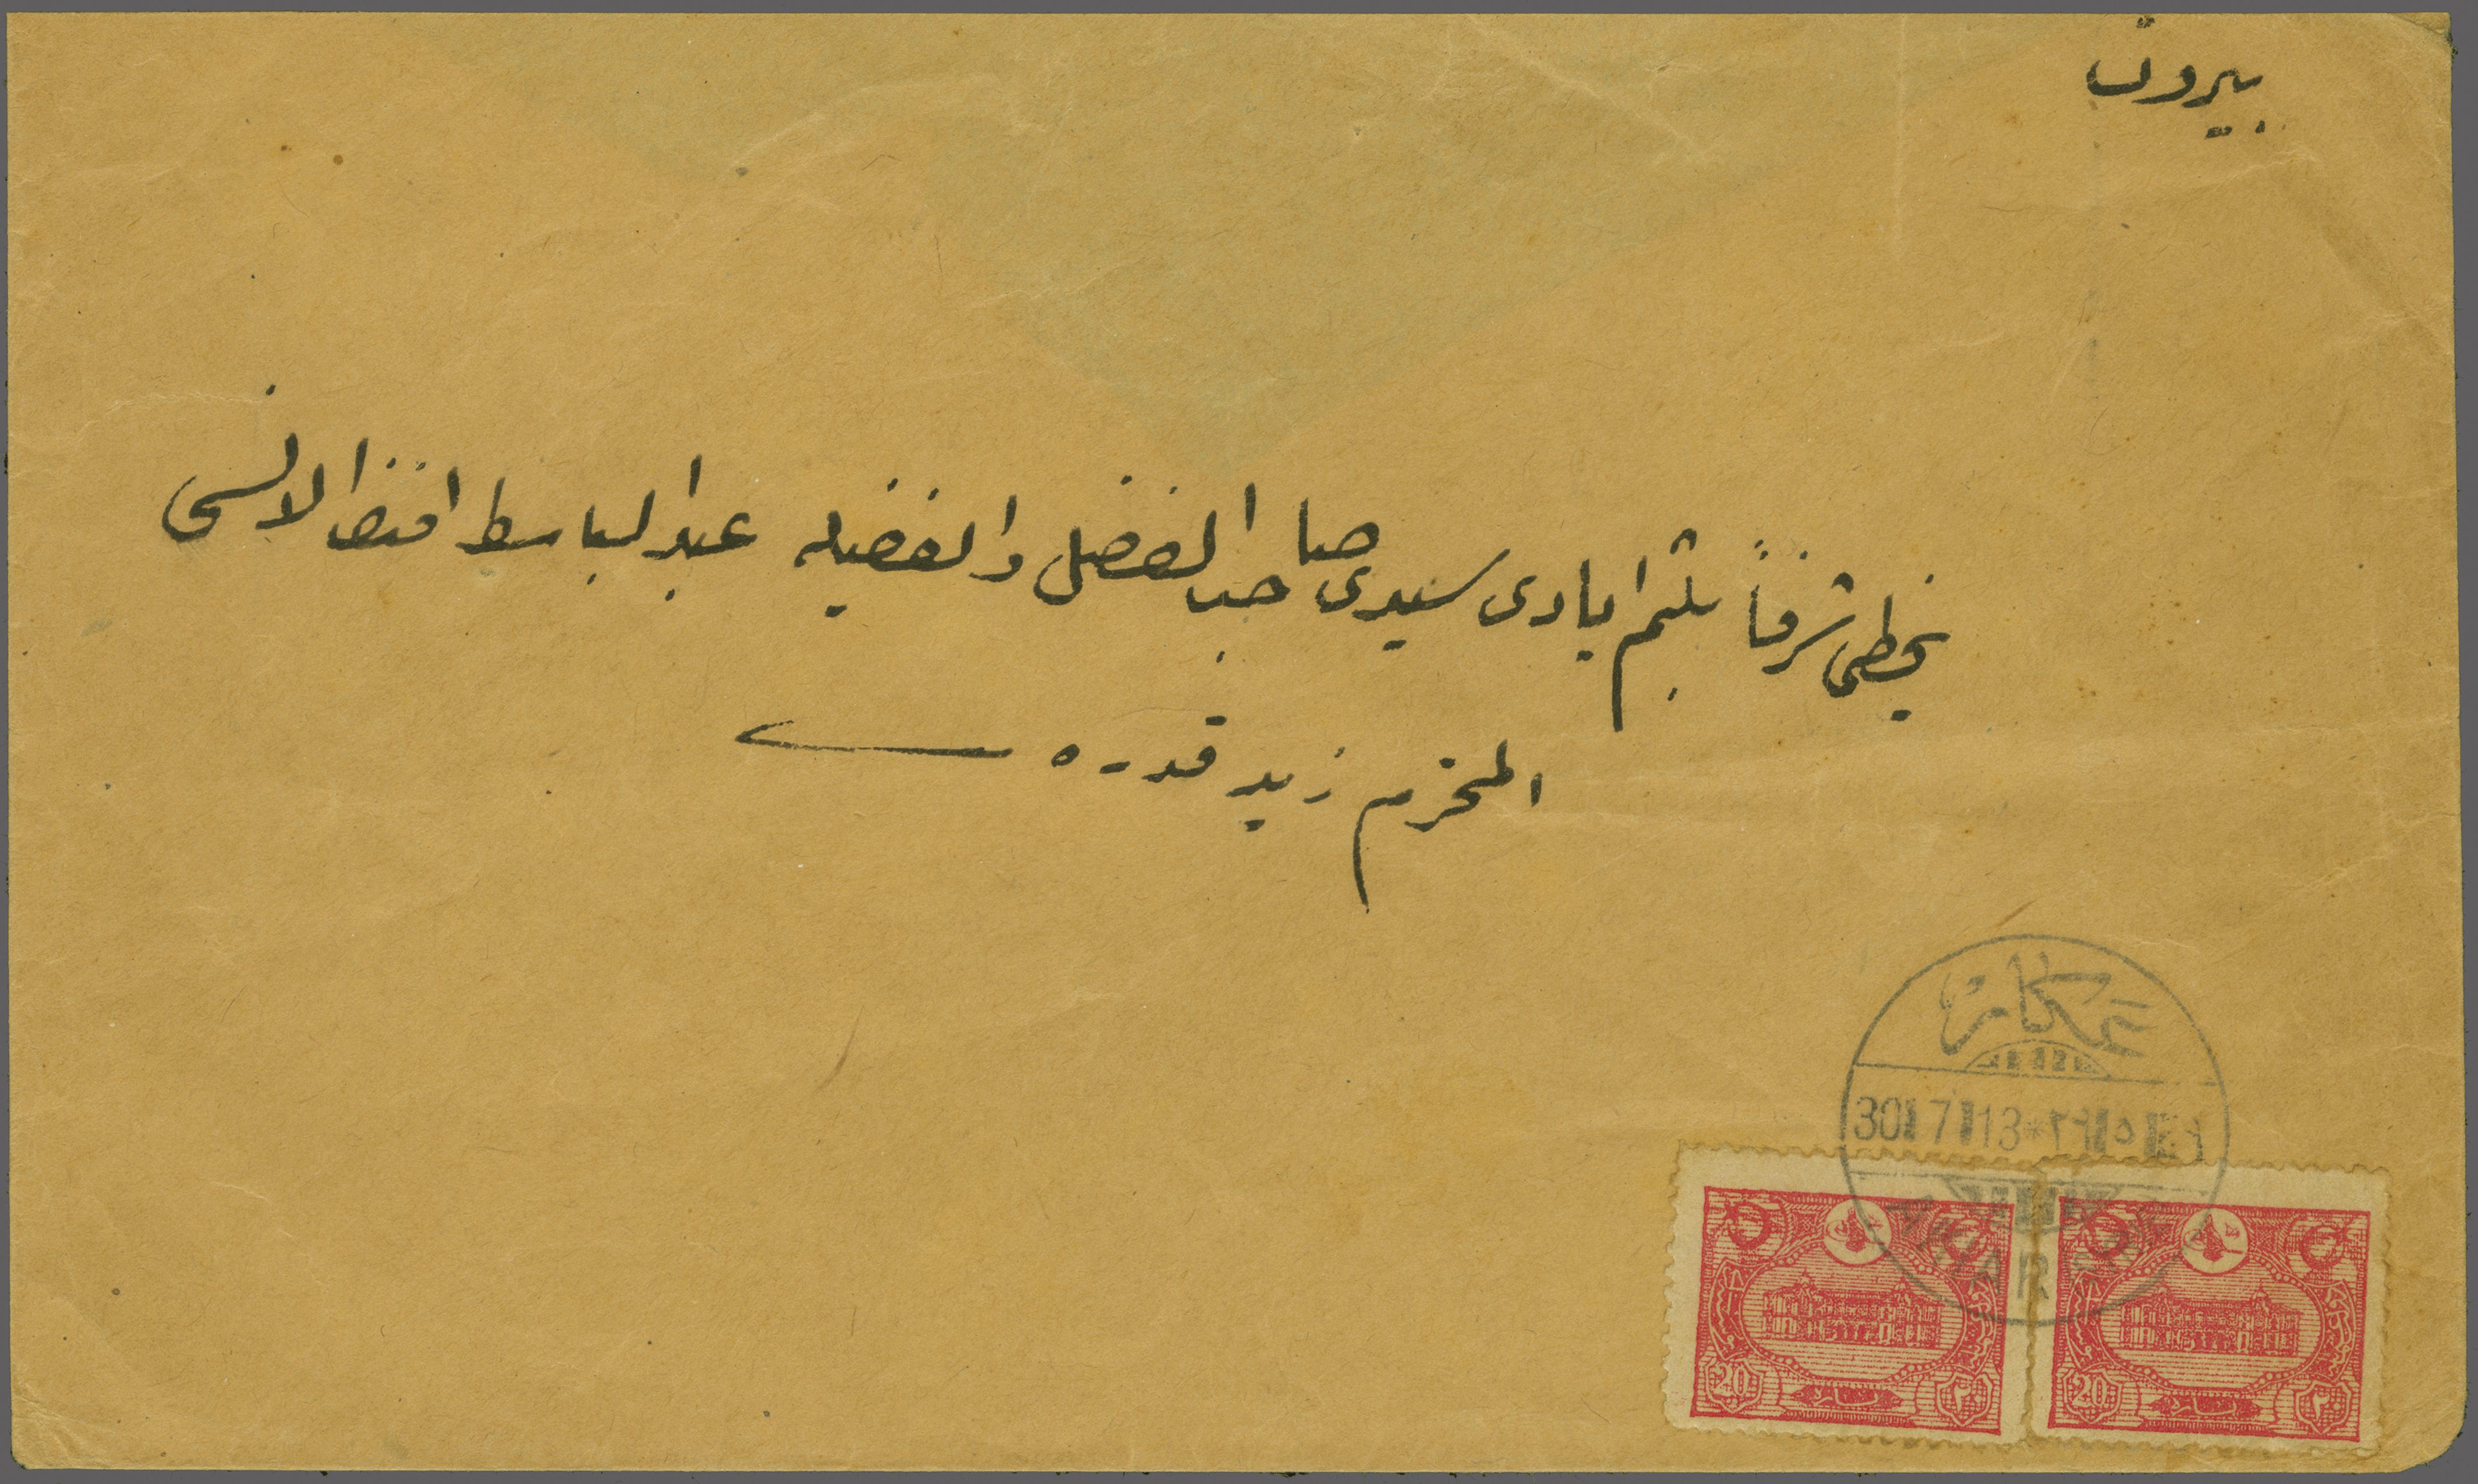 بيروت
يحظى شرفاً بلثم ايادى سيدى صاحب الفضل والفضيله عبد الباسط افندى الانسى
المحترم زيد قدره
عكار
30 7 13 * ٢٩ ٥
AKKAR
20 ٢٠
20 ٢٠